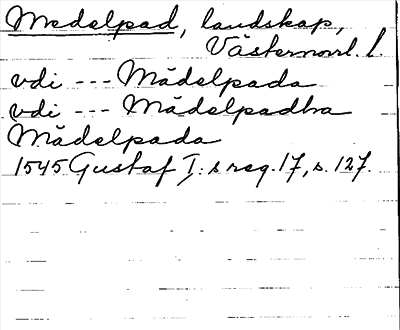 Medelpad, landskap,
Västernorrl. l.
vdi --- Mädelpada
vdi --- Mädelpadha
Mädelpada
1545 Gustaf I:s reg. 17, s. 127.